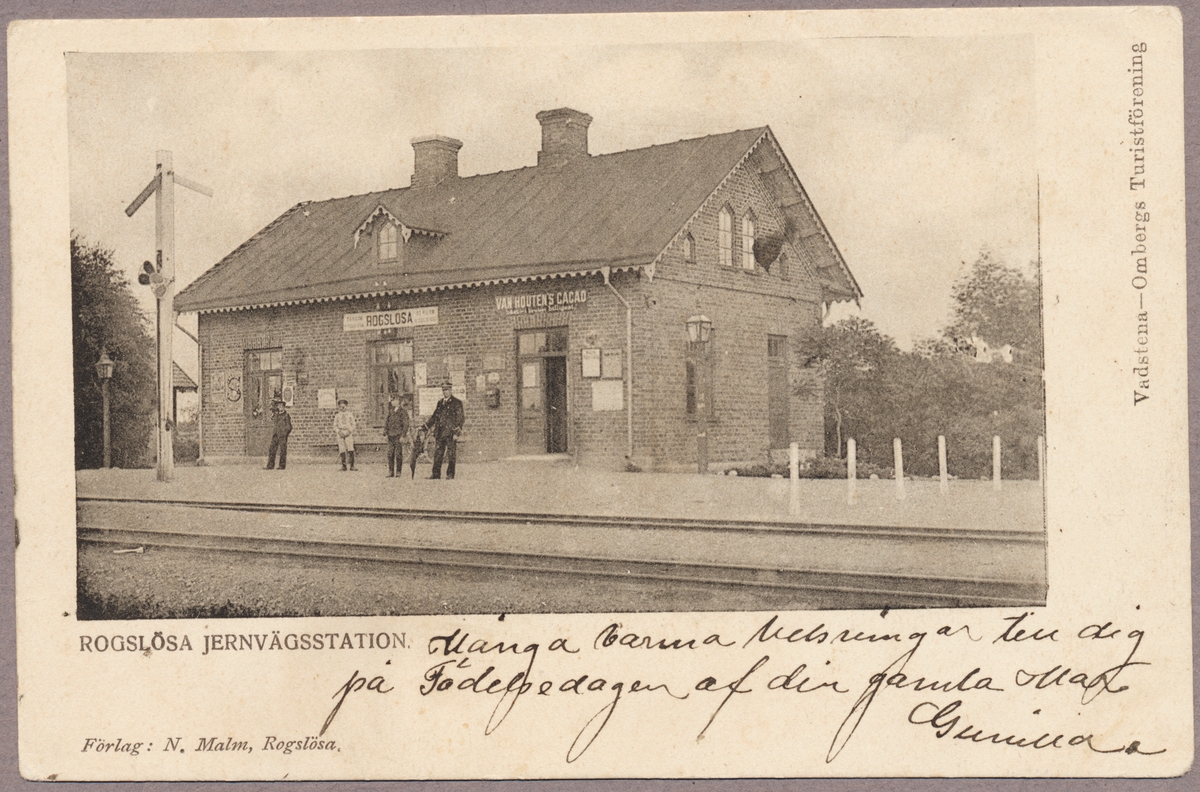 Vadstena—Ombergs Turistförening
ROGSLÖSA
VAN HOUTEN'S CACAO
ROGSLÖSA JERNVÄGSSTATION.
Många varma helsningar till dig
på Födelsedagen af din gamla
Gunilla
Förlag: N. Malm, Rogslösa.